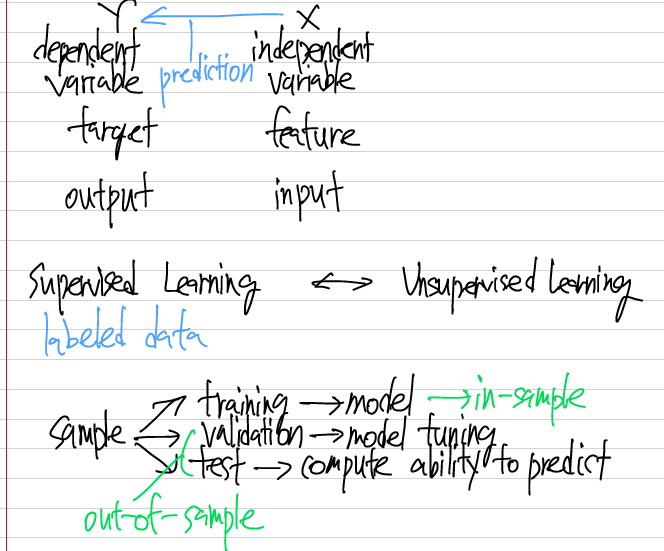 Y ← X
dependent independent
variable prediction variable
target feature
output input
Supervised Learning ↔ Unsupervised Learning
labeled data
training → model → in-sample
Sample → validation → model tuning
test → compute ability to predict
out-of-sample